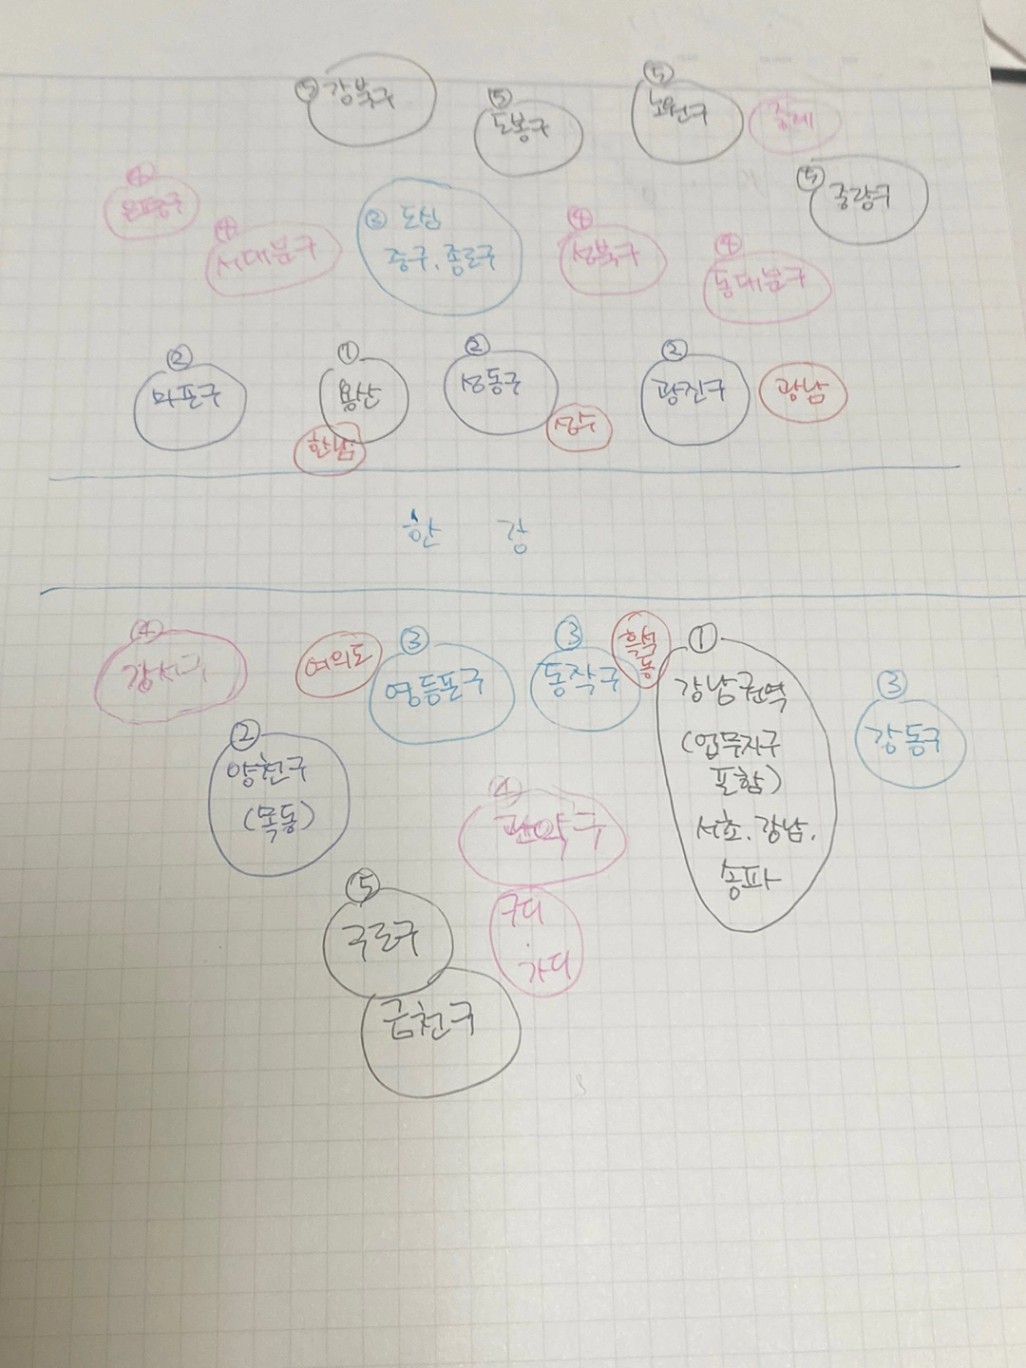 ⑤ 강북구
⑤
도봉구
⑤
노원구
중계
⑤ 중랑구
④
은평구
④
서대문구
③ 도심
중구, 종로구
④
성북구
④
동대문구
②
마포구
①
용산
한남
②
성동구
성수
②
광진구
광남
한 강
④
강서구
여의도
③
영등포구
③
동작구
흑석
동
①
강남권역
(업무지구
포함)
서초, 강남,
송파
③
강동구
②
양천구
(목동)
④
관악구
구디
·
가디
⑤
구로구
금천구